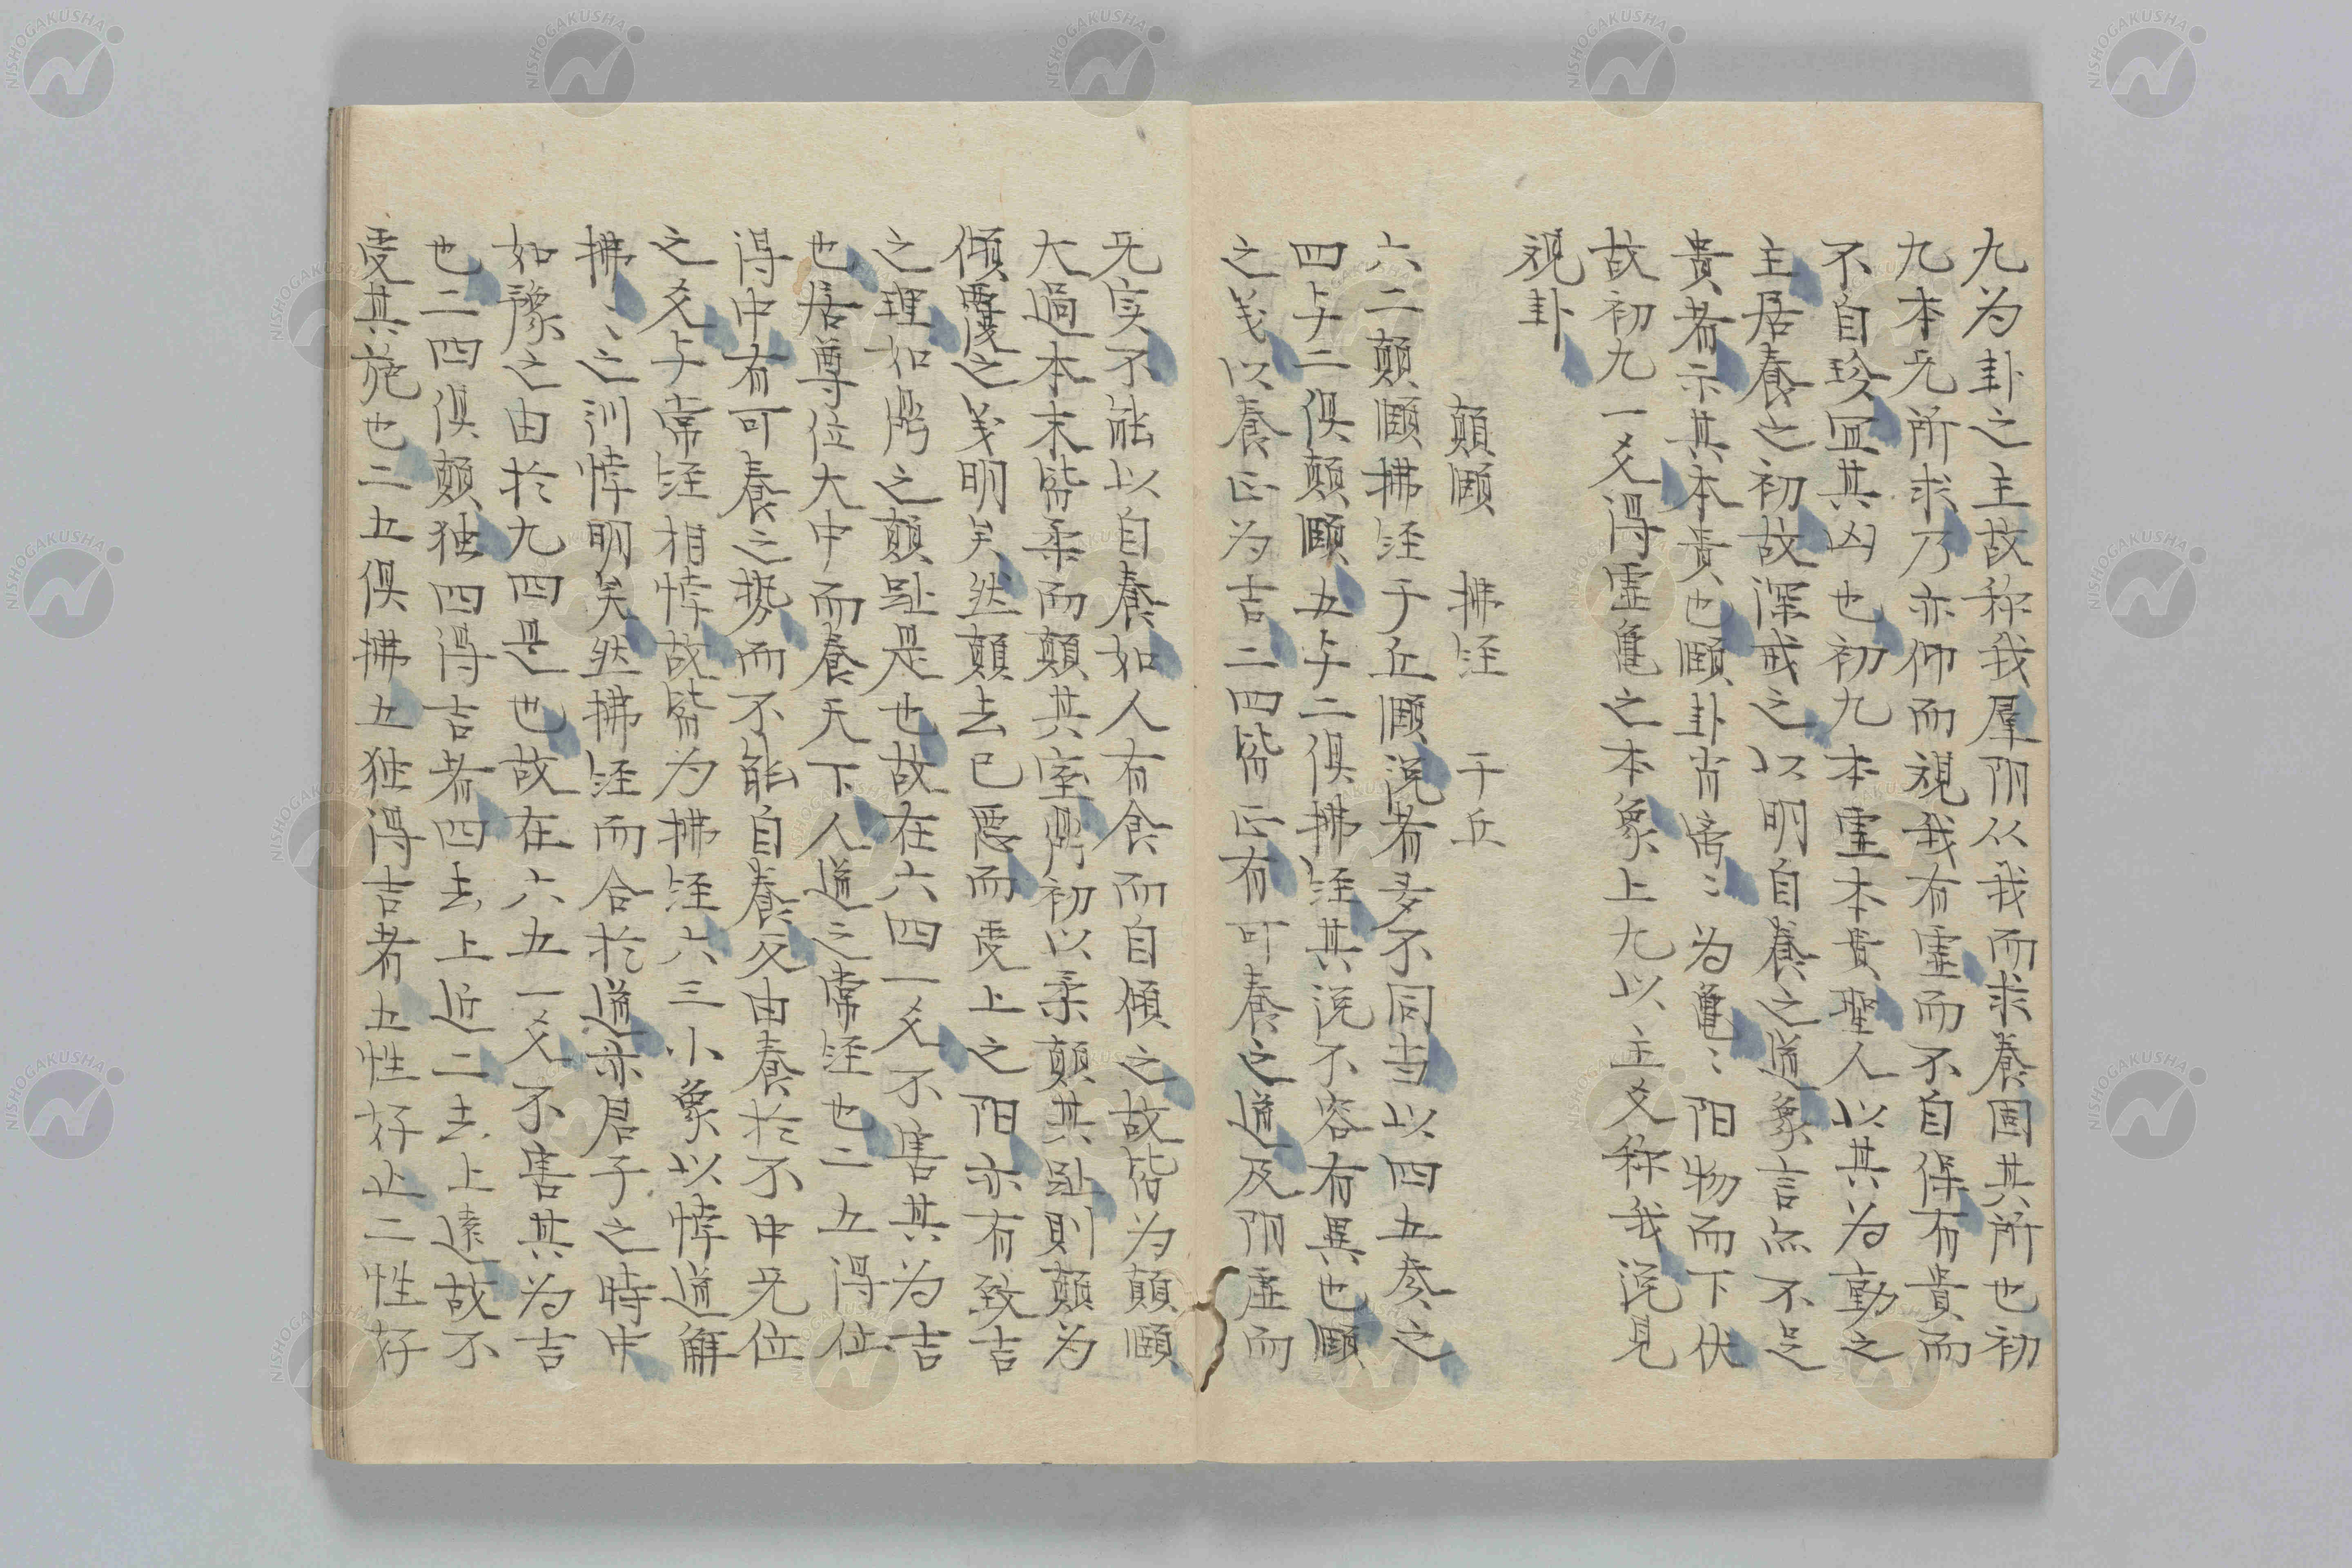 九为卦之主故称我羣阴从我而求養固其所也初
九本旡所求乃亦仰而視我有霊而不自保有貴而
不自珍冝其凶也初九本霊本貴聖人以其为動之
主居養之初故深戒之以明自養之道象言亦不足
貴者示其本貴也頤卦肖离〻为亀〻阳物而下伏
故初九一爻得霊亀之本象上九以主爻称我説見
覌卦
顛頤 拂経 于丘
六二顛頤拂経于丘頤説者多不同当以四五叅之
四与二俱顛頤五与二俱拂経其説不容有異也頤
之義以養正为吉二四皆正有可養之道及阴虚而
旡实不能以自養如人有食而自傾之故皆为顛頤
大過本末皆柔而顛其室鼎初以柔顛其趾則顛为
傾覆之義明矣然顛去已悪而受上之阳亦有致吉
之理如鼎之顛趾是也故在六四一爻不害其为吉
也居尊位大中而養天下人道之常経也二五得位
得中有可養之㔟而不能自養反由養於不中旡位
之爻与常経相悖故皆为拂経六三小象以悖道觧
拂〻之训悖明矣然拂経而合於道亦君子之時中
如豫之由於九四是也故在六五一爻不害其为吉
也二四俱顛独四得吉者四去上近二去上遠故不
受其施也二五俱拂五独得吉者五性好止二性好